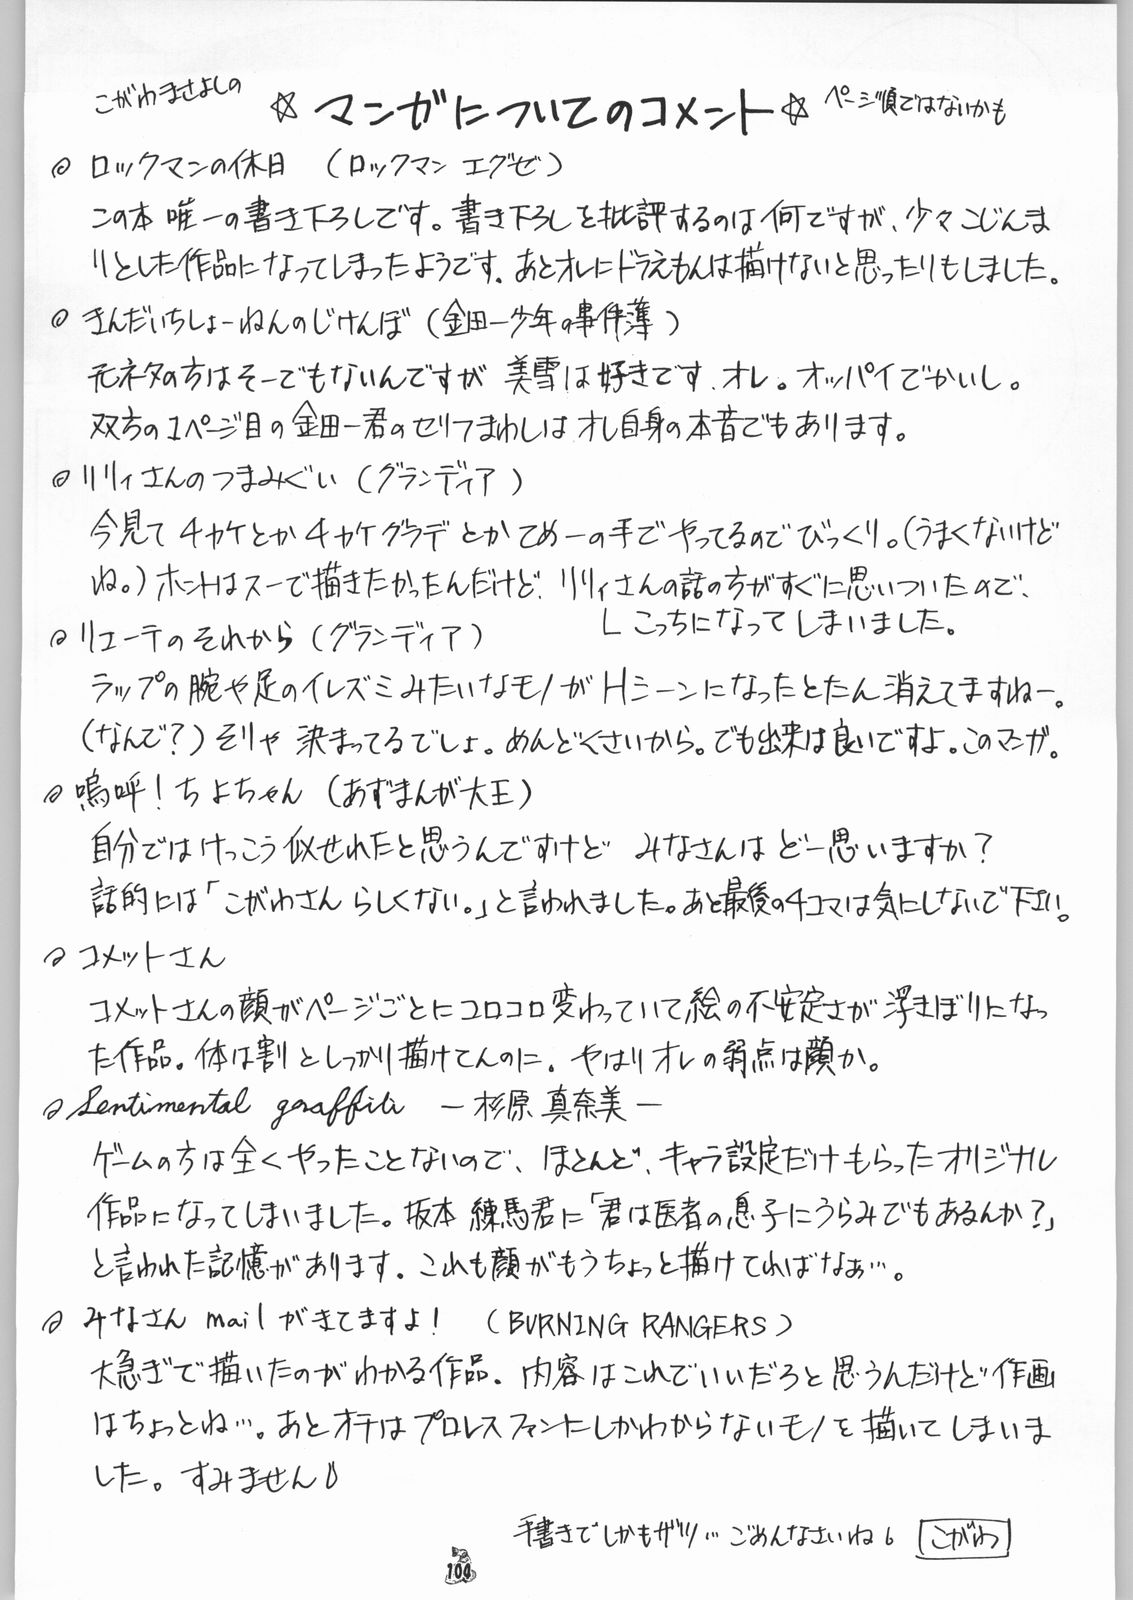 こがわまさよしの
☆ マンガについてのコメント ☆
ページ順ではないかも
◎ ロックマンの休日 (ロックマン エグゼ)
この本 唯一の書き下ろしです。書き下ろしを批評するのは何ですが、少々こじんま
りとした作品になってしまったようです。あとオレにドラえもんは描けないと思ったりもしました。
◎ きんだいちしょーねんのじけんぼ (金田一少年の事件簿)
元ネタの方はそーでもないんですが 美雪は好きです、オレ。オッパイでかいし。
双方の1ページ目の金田一君のセリフまわしは オレ自身の本音でもあります。
◎ リリィさんのつまみぐい (グランディア)
今見て チャケとか チャケグラデ とか てめーの手でやってるのでびっくり。(うまくないけど
ね。)ホントはスーで描きたかったんだけど、リリィさんの話の方がすぐに思いついたので、
こっちになってしまいました。
◎ リエーテのそれから (グランディア)
ラップの腕や足のイレズミみたいなモノがHシーンになったとたん消えてますねー。
(なんで?) そりゃ 決まってるでしょ。めんどくさいから。でも出来は良いですよ。このマンガ。
◎ 嗚呼!ちよちゃん (あずまんが大王)
自分ではけっこう似せれたと思うんですけど みなさんは どー思いますか?
話的には「こがわさん らしくない。」と言われました。あと最後の4コマは気にしないで下さい。
◎ コメットさん
コメットさんの顔がページごとにコロコロ変わっていて絵の不安定さが浮きぼりになっ
た作品。体は割としっかり描けてんのに。やはりオレの弱点は顔か。
◎ Sentimental graffiti ー杉原 真奈美ー
ゲームの方は全くやったことないので、ほとんど、キャラ設定だけもらったオリジナル
作品になってしまいました。坂本 練馬君に「君は医者の息子にうらみでもあるんか?」
と言われた記憶があります。これも顔がもうちょっと描けてればなぁ…。
◎ みなさん mail がきてますよ! (BURNING RANGERS)
大急ぎで描いたのがわかる作品。内容はこれでいいだろと思うんだけど作画
はちょっとね…。あとオチはプロレスファンにしかわからないモノを描いてしまいま
した。すみません
手書きでしかもザツ… ごめんなさいね。 こがわ
104